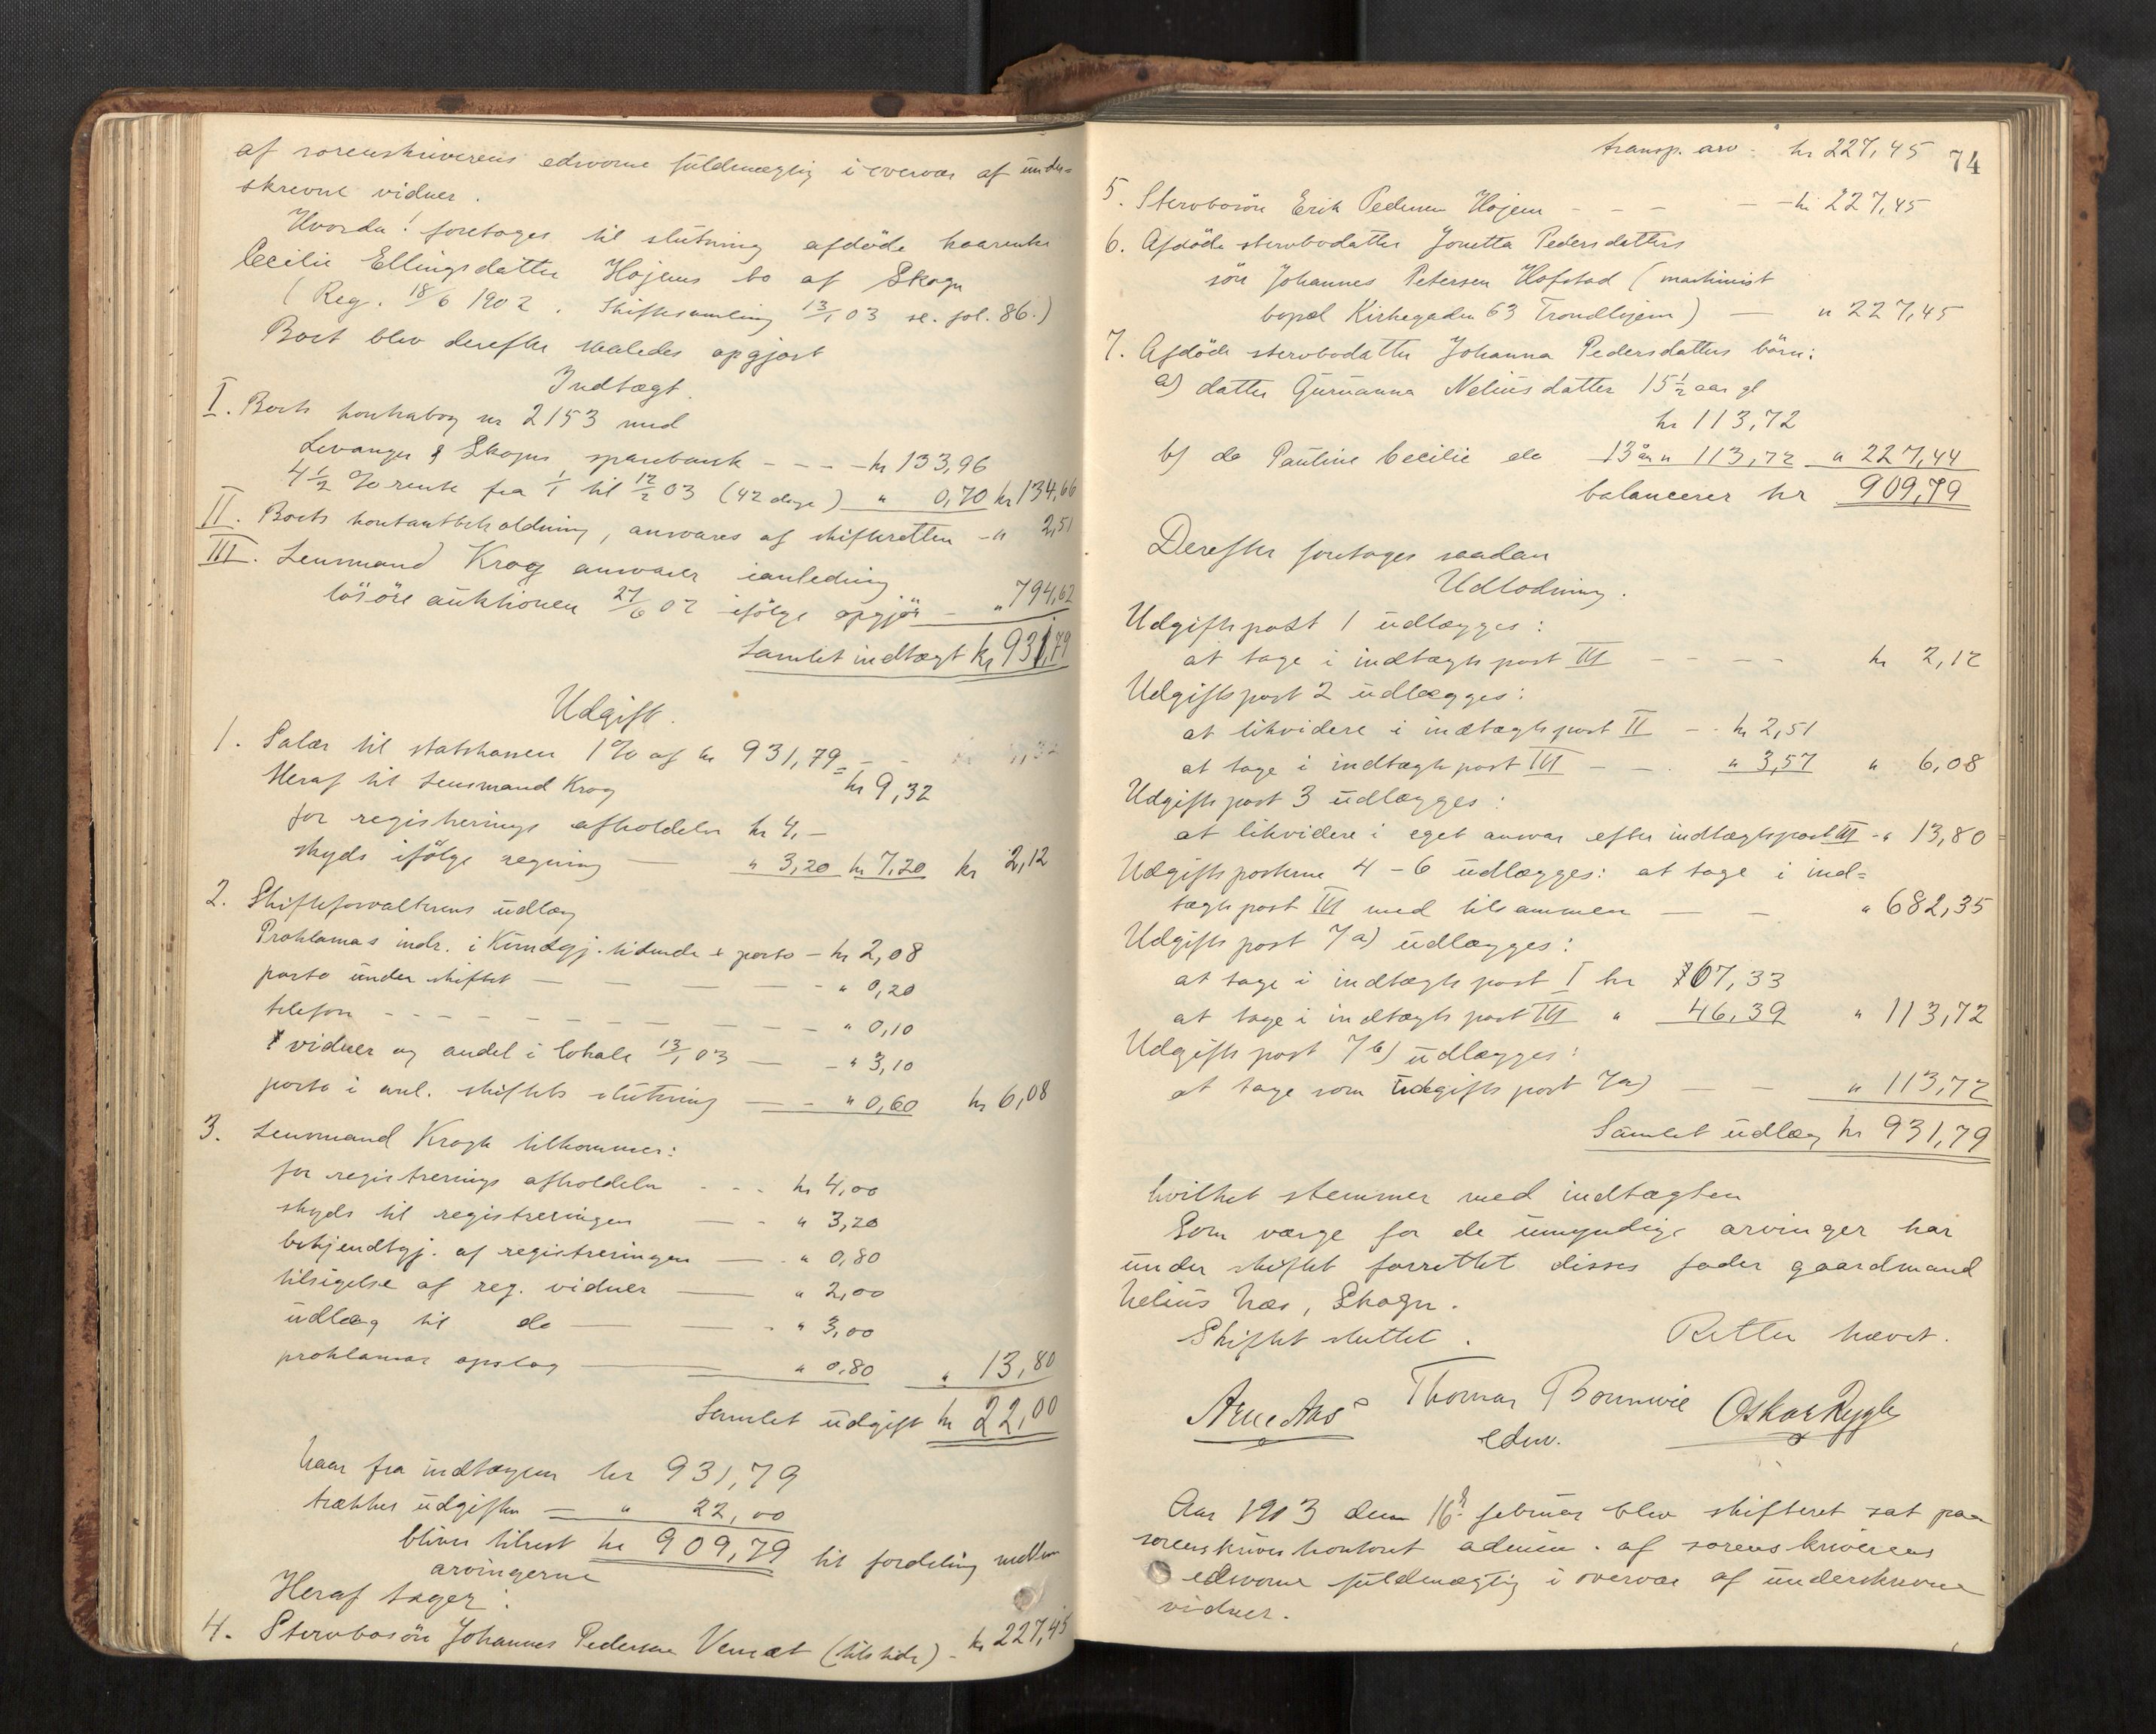 af sorenskriverens edsvorne fuldmægtig i overvær af under=
skrevne vidner.
Hvorda! foretages til slutning afdöde kaarenke
Cecilie Ellingsdatter Höjems bo af Skogn
(Reg. 18/6 1902. Skiftesamling 13/1 03 se. fol. 86.)
Boet blev derefter saaledes opgjort
Indtægt.
I. Boets kontrabog nr 2153 med
Levanger & Skogns sparebank - - - - kr 133,96
4 1/2 % rente fra 1/1 til 12/2 03 (42 dage) " 0,70 kr 134,66
II. Boets kontantbeholdning, ansvares af skifteretten - " 2,51
III. Lensmand Krog ansvarer ianledning
lösöre auktionen 27/6 02 ifölge opgjör - " 794,62
Samlet indtægt kr 931,79
Udgift.
1. Salær til statskassen 1 % af kr 931,79 = - -
Heraf til Lensmand Krog kr 9,32
for registrerings afholdelse kr 4,-
skyds ifölge regning — " 3,20 kr 7,20 kr 2,12
2. Skifteforvalterens udlæg
Proklamas indr. i Kundgj. tidende & porto - kr 2,08
porto under skiftet — — — — - " 0,20
telefon - - - — — — — " 0,10
vidner og andel i lokale 13/1 03 — - " 3,10
porto i anl. skiftets slutning — - " 0,60 kr 6,08
3. Lensmand Krogh tilkommer:
for registrerings afholdelse - - - kr 4,00
skyds til registreringen — - " 3,20
bekjendtgj. af registreringen — - " 0,80
tilsigelse af reg. vidner — " 2,00
udlæg til do — — - " 3,00
proklamas opslag — " 0,80 " 13,80
Samlet udgift kr 22,00
Naar fra indtægten kr 931,79
trækkes udgiften — " 22,00
bliver tilrest kr 909,79 til fordeling mellem
arvingerne
Heraf tager:
4. Stervbosön Johannes Pedersen Venæt (tilstede) - kr 227,45
74
transp. arv - kr 227,45
5. Stervbosön Erik Pedersen Höjem - - - - kr 227,45
6. Afdöde stervbodatter Jonetta Pedersdatters
sön Johannes Petersen Hofstad (maskinist
bopæl Kirkegaden 63 Trondhjem) — " 227,45
7. Afdöde stervbodatter Johanna Pedersdatters börn:
a) datter Guruanna Neliusdatter 15 1/2 aar gl
kr 113,72
b) do Pauline Cecilie do 13 år " 113,72 " 227,44
balancerer kr 909,79
Derefter foretages saadan
Udlodning.
Udgiftspost 1 udlægges:
at tage i indtægtspost III - - - - kr 2,12
Udgiftspost 2 udlægges:
at likvidere i indtægtspost II - - kr 2,51
at tage i indtægtspost III - — " 3,57 " 6,08
Udgiftspost 3 udlægges:
at likvidere i eget ansvar efter indtægtspost III - " 13,80
Udgiftsposterne 4 - 6 udlægges: at tage i ind=
tægtspost III med tilsammen — - " 682,35
Udgiftspost 7a) udlægges:
at tage i indtægtspost I kr 67,33
at tage i indtægtspost III " 46,39 " 113,72
Udgiftspost 7b) udlægges:
at tage som udgiftspost 7a) — " 113,72
Samlet udlæg kr 931,79
hvilket stemmer med indtægten
Som værge for de umyndige arvinger har
under skiftet forrettet disses fader gaardmand
Nelius Næs, Skogn.
Skiftet sluttet. Retten hævet.
Arne Aas Thomas Bonnevie Oskar Rygh
edsv.
Aar 1903 den 16de februar blev skifteret sat paa
sorenskriverkontoret admin. af sorenskriverens
edsvorne fuldmægtig i overvær af underskrevne
vidner.